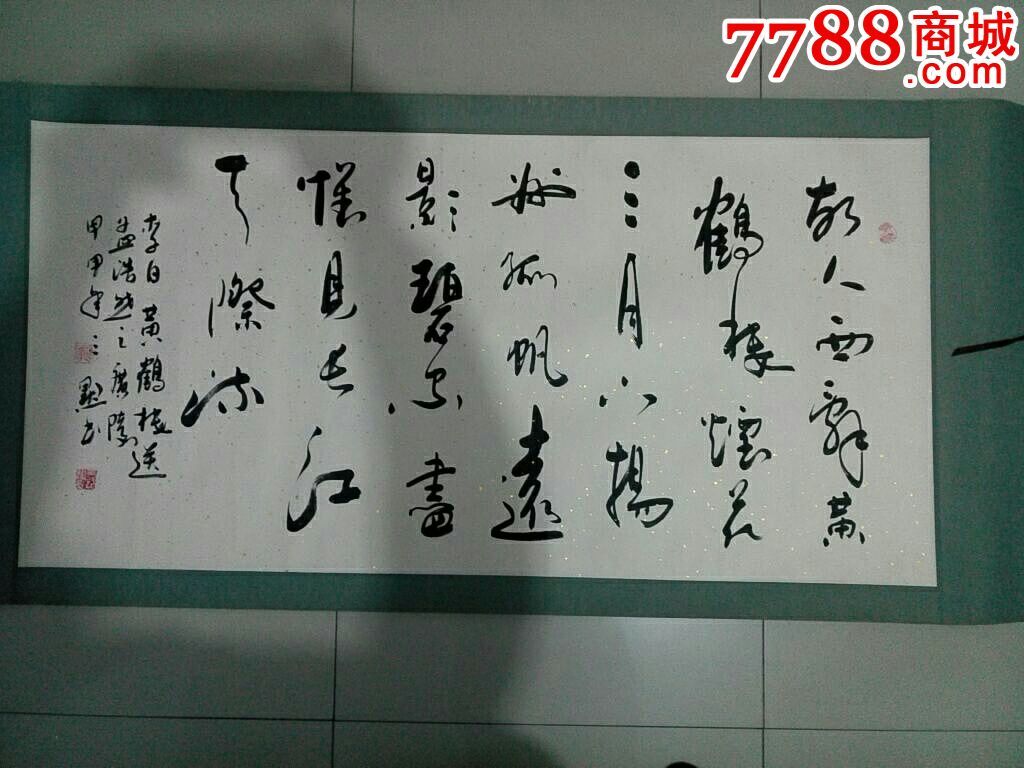 7788商城
.com
故人西辭黃
鶴樓煙花
三月下揚
州孤帆遠
影碧空盡
惟見長江
天際流
李白黃鶴樓送
孟浩然之廣陵
甲申年三默书